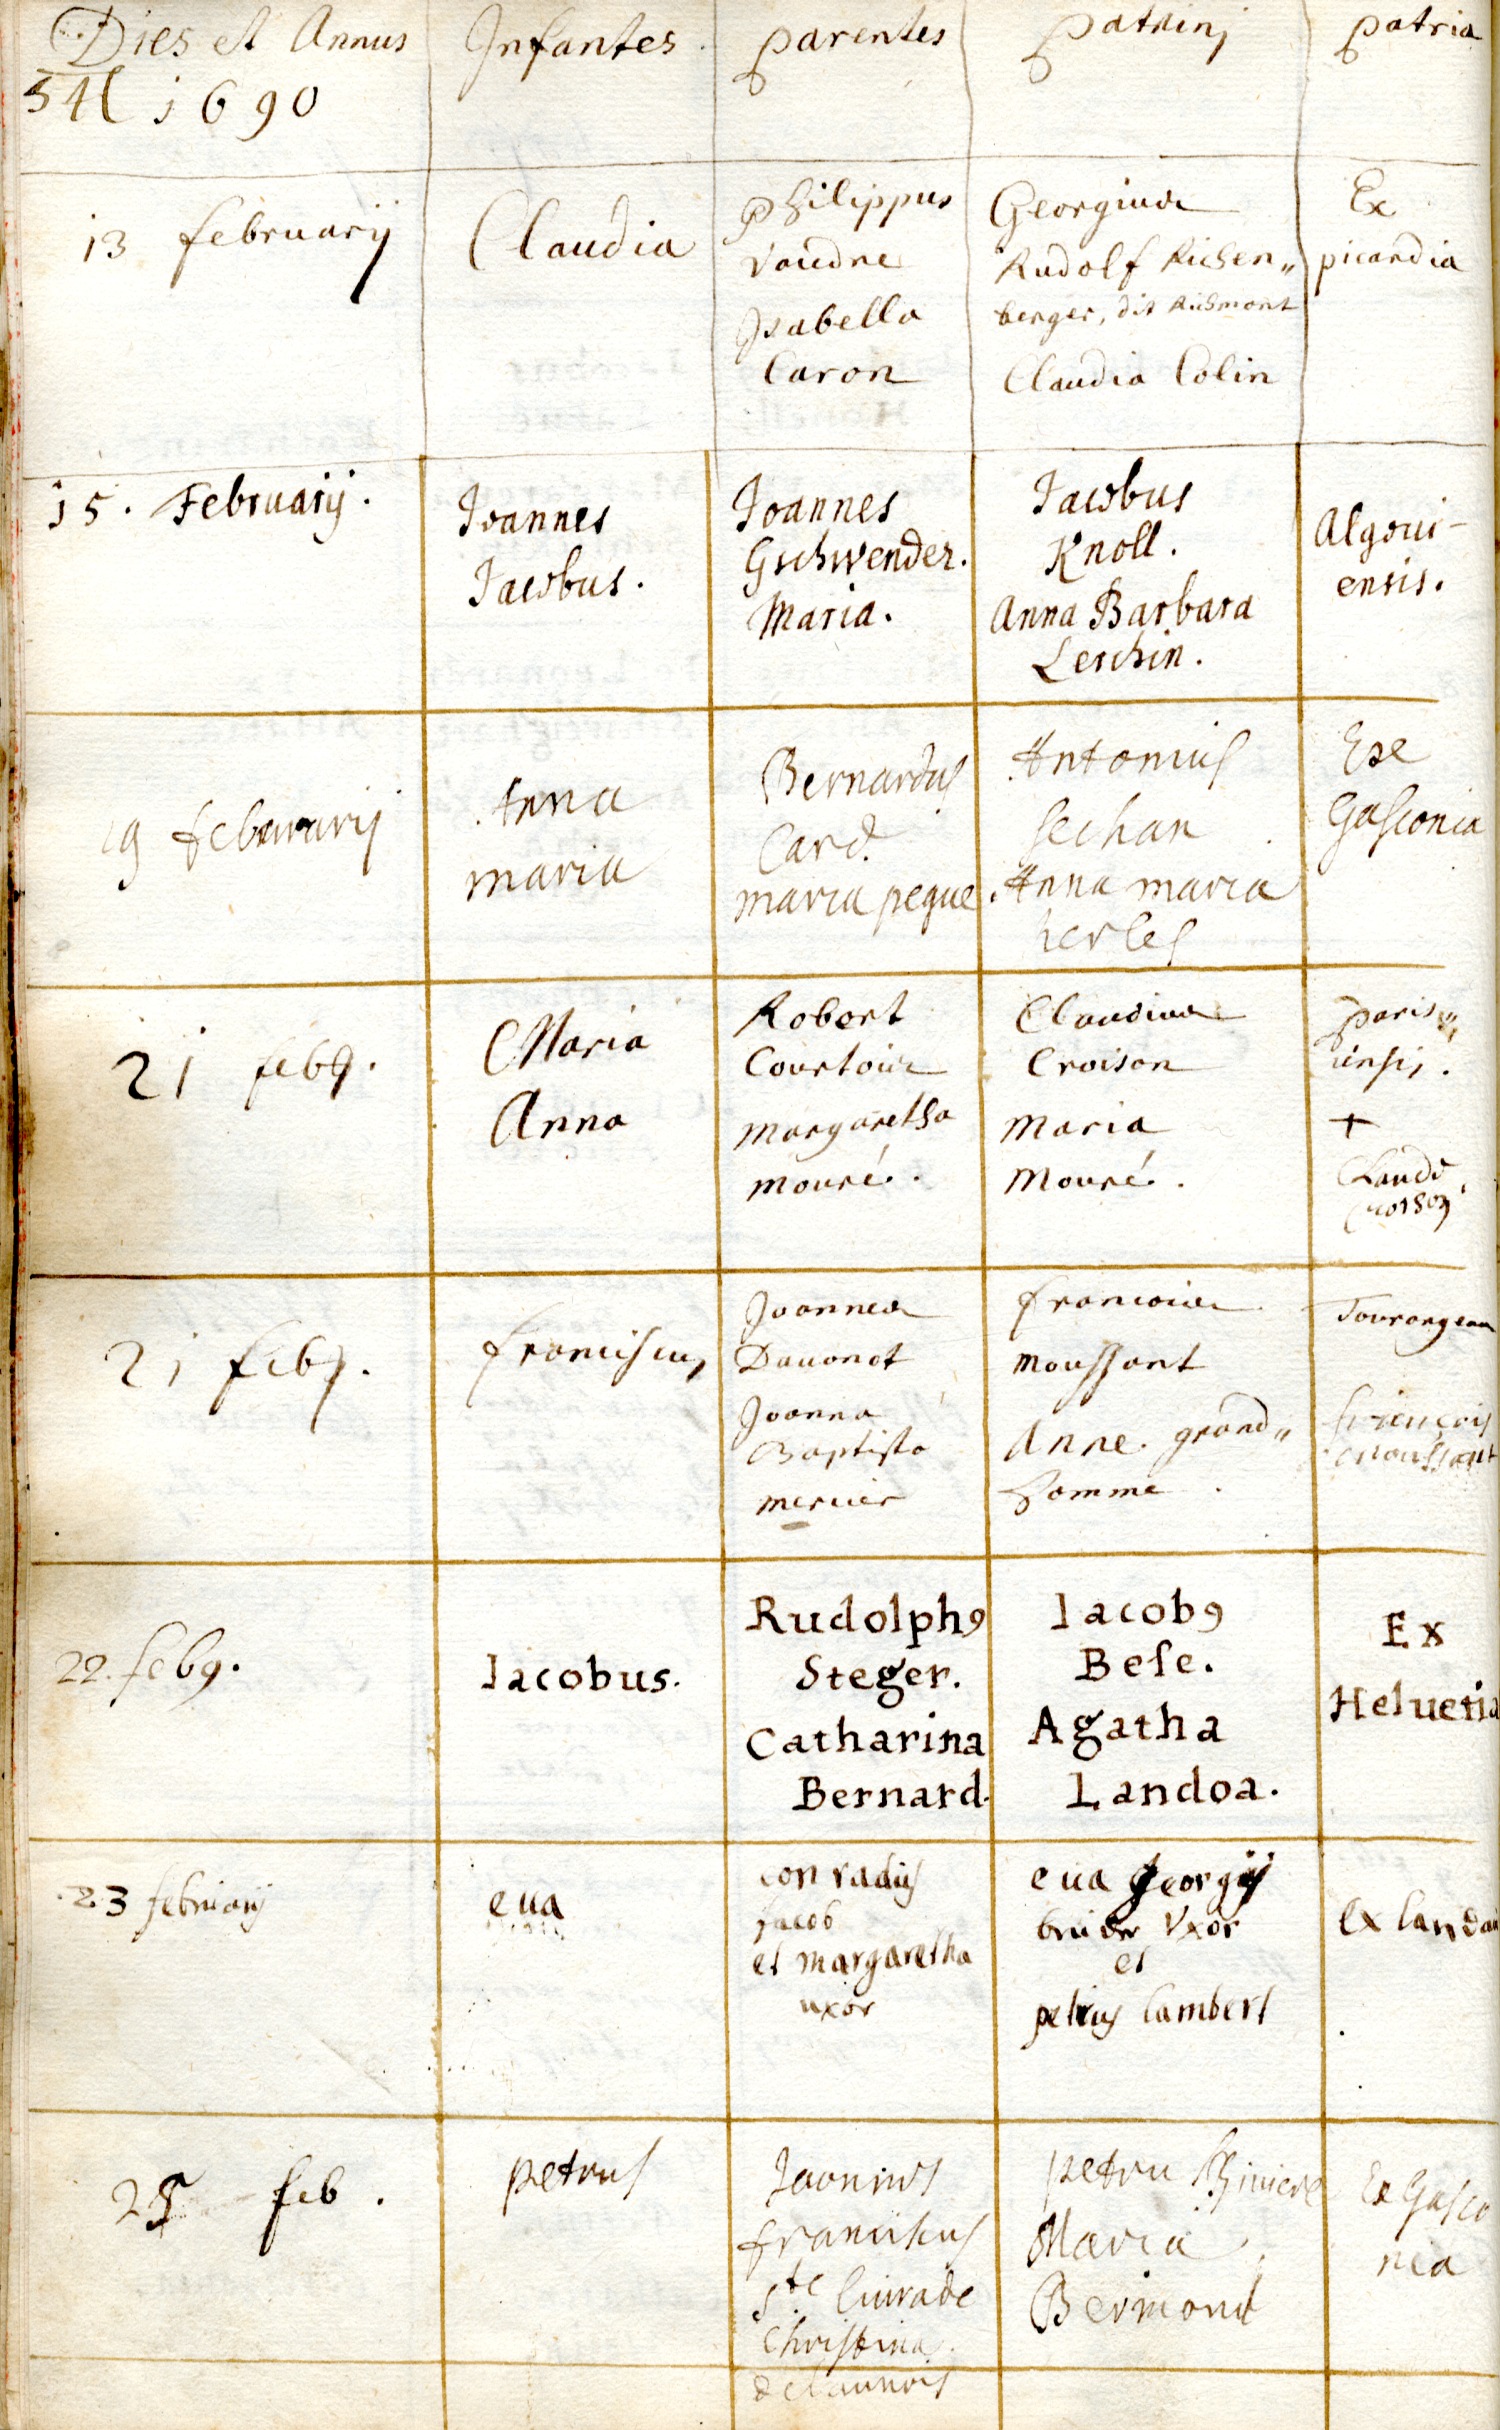 Dies et Annus
1690
Infantes.
parentes
patrinj
patria
13 februarij
Claudia
philippus
Voudne
Isabella
Caron
Georgius
Rudolf Richen„
berger, dit Richmont
Claudia Colin
Ex
picardia
15. Februarij.
Ioannes
Iacobus.
Ioannes
Gschwender.
Maria.
Iacobus
Knoll.
Anna Barbara
Lerchin.
Algoui-
ensis.
19 februarij
Anna
maria
Bernardus
Card.
maria peque
Antonius
sechan
Anna maria
Exe
Gasconia
21 feb9.
Maria
Anna
Robert
Courtois
margaretha
mouré.
Claudius
Croison
Maria
Mouré.
paris„
iensis.
+
Claude
21 feb9.
franciscus
Joannes
Dauonot
Joanna
Baptista
mercier
francois
moussant
Anne grand„
homme.
Tourangeau
francois
moussant
22. feb9.
Iacobus.
Rudolph9
Steger.
Catharina
Bernard.
Iacob9
Bese.
Agatha
Landoa.
Ex
Heluetia
23 februarij
eua
conradus
jacob
et margaretha
uxor
eua georgij
bruder Vxor
et
petrus Lambert
ex landau
25 feb.
petrus
franciscus
ste liurade
Christina
delaunois
petru Riuiere
Maria
Bermont
Ex Gasco
nia